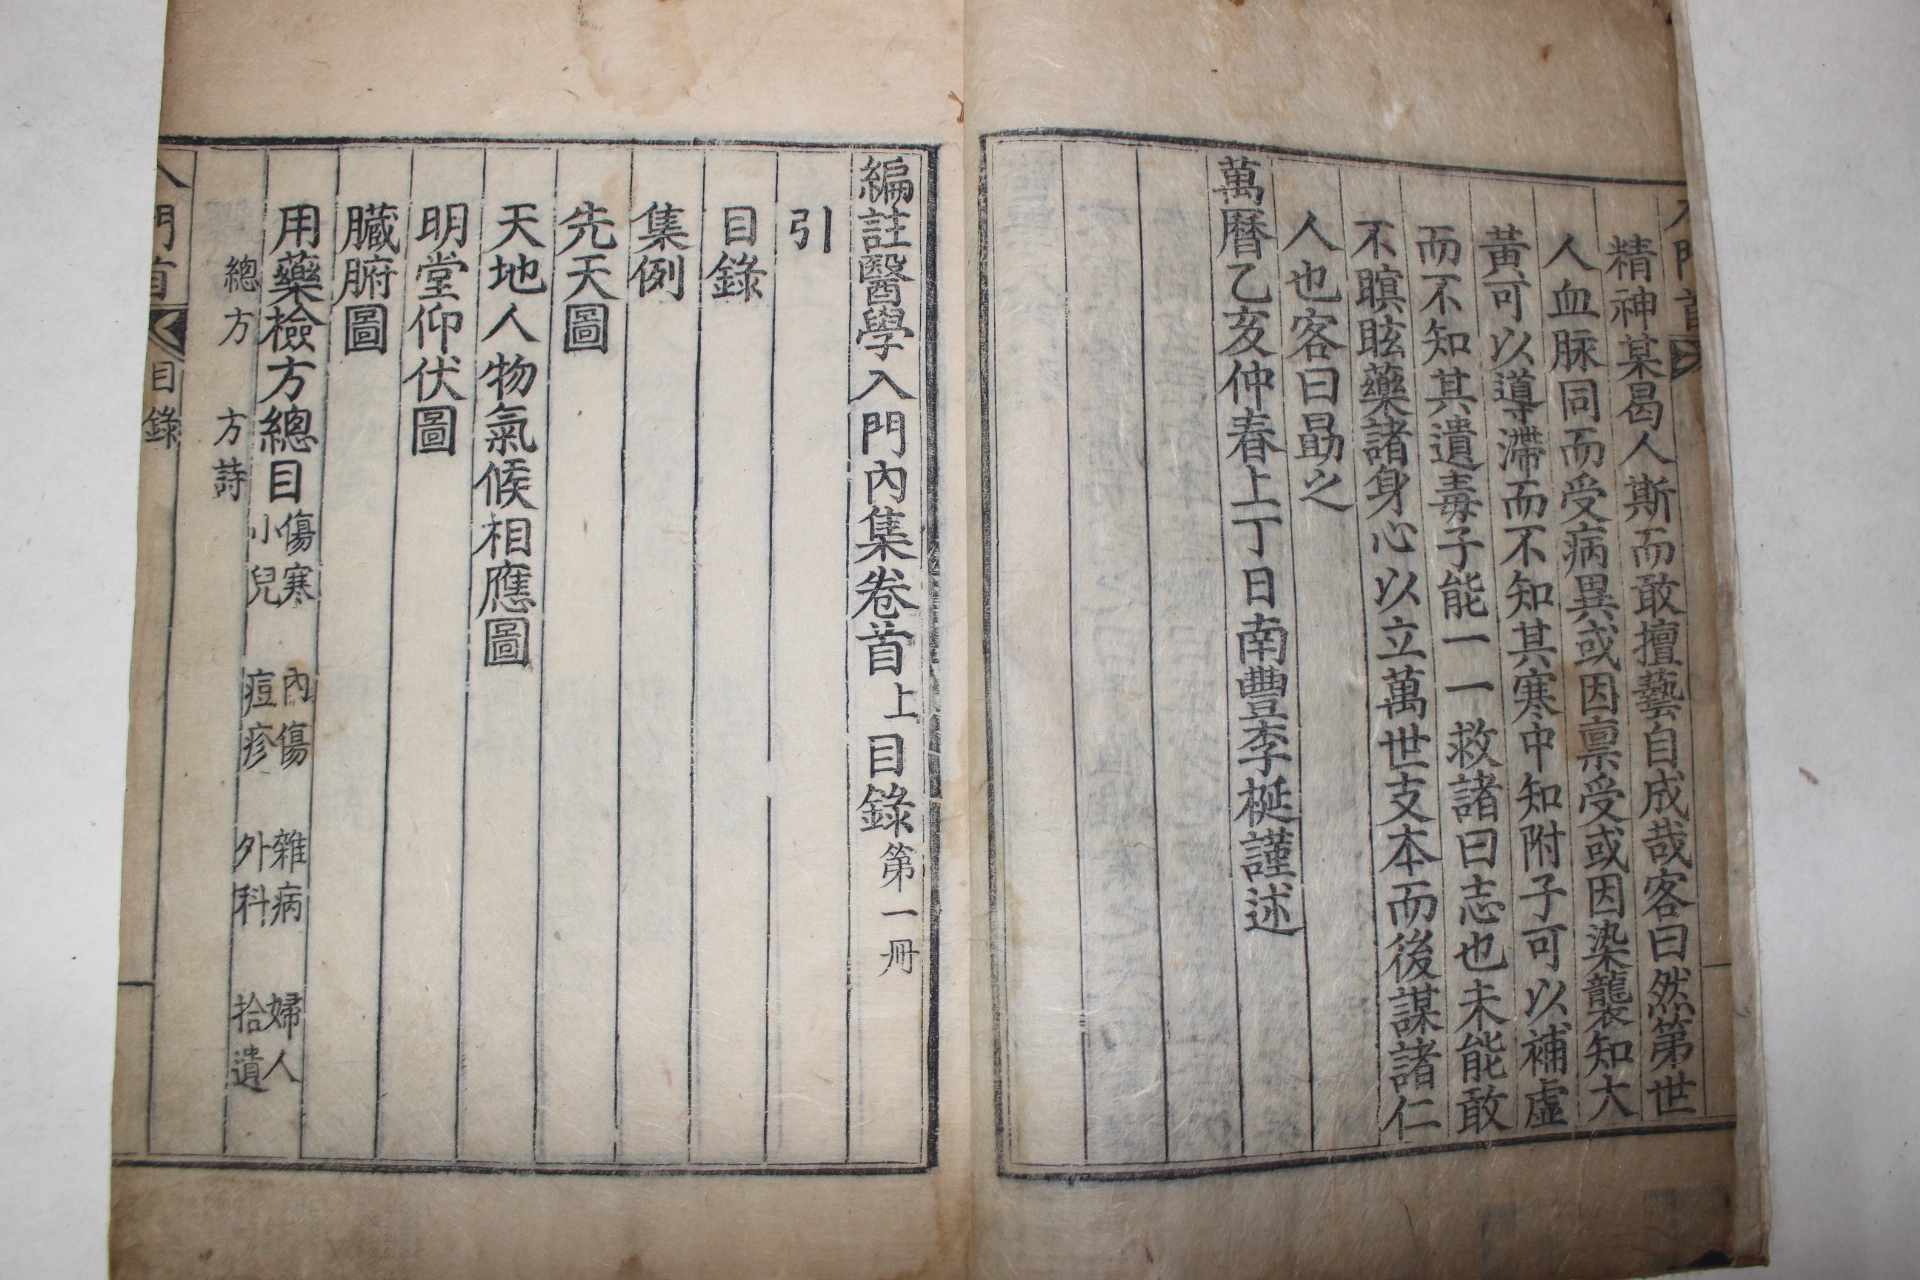 精神某曷人斯而敢擅藝自成哉客曰然第世
人血脉同而受病異或因禀受或因染襲知大
黃可以導滯而不知其寒中知附子可以補虛
而不知其遺毒子能一一救諸曰志也未能敢
不瞑眩藥諸身心以立萬世支本而後謀諸仁
人也客曰勗之
萬曆乙亥仲春上丁日南豐李梴謹述
編註醫學入門內集卷首上目錄第一冊
引
目錄
集例
先天圖
天地人物氣候相應圖
明堂仰伏圖
臟腑圖
用藥檢方總目 傷寒 內傷 雜病 婦人
小兒 痘疹 外科 拾遺
總方 方詩
入門首 目錄